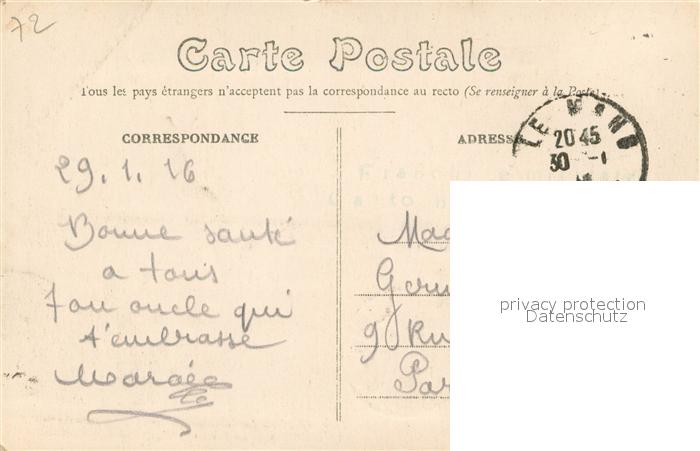 72
Carte Postale
Tous les pays étrangers n'acceptent pas la correspondance au recto (Se renseigner à la Poste)
CORRESPONDANCE
ADRESSE
LE MANS
20 45
30 - 1
29.1.16
Bonne santé
a tous
Ton oncle qui
t'embrasse
Mad
9 Ru
Par
privacy protection
Datenschutz